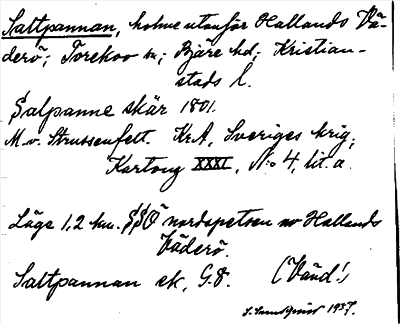 Saltpannan, holme utanför Hallands Vä-
derö; Torekov sn; Bjäre hd; Kristian-
stads l.
Salpanne skär 1801.
M. v. Strussenfelt. KrA, Sveriges krig,
Kartong XXXI, No 4, lit. a.
Läge 1,2 km. SSO nordspetsen av Hallands
Väderö.
Saltpannan ek. G. 8. (Vänd!)
S. 1937.